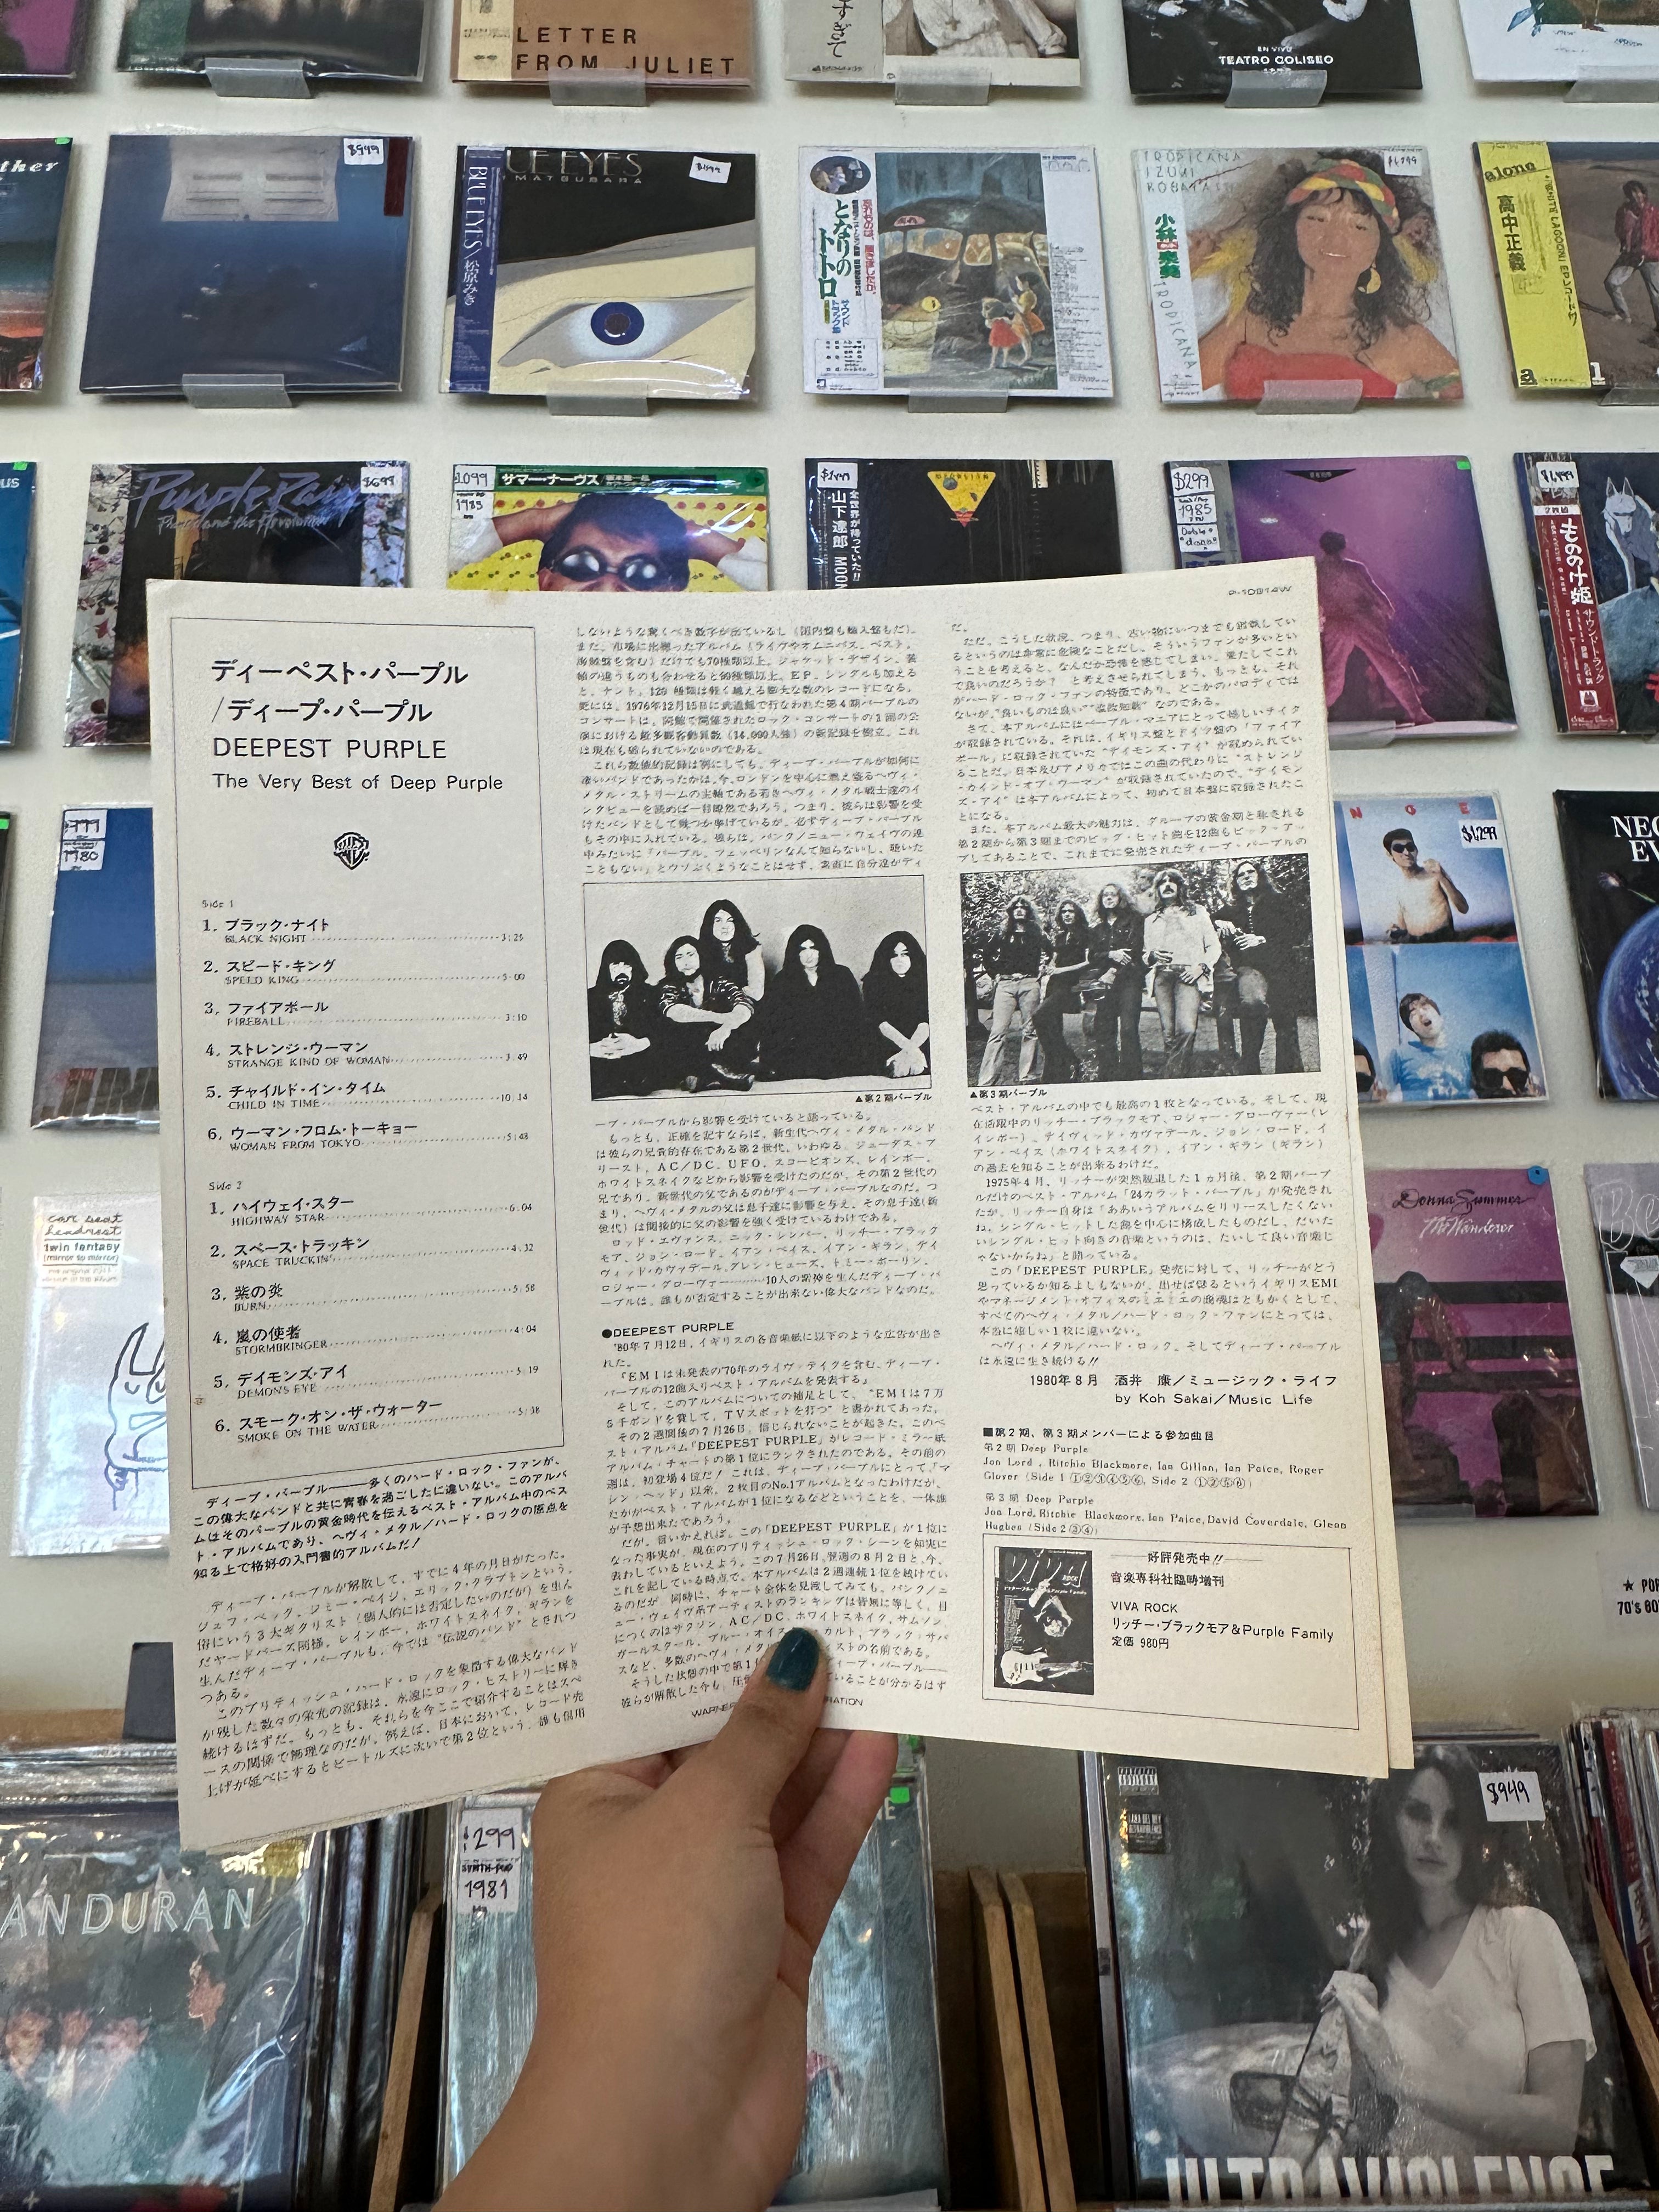 LETTER
FROM JULIET
すぎて
EN VIVO
TEATRO COLISEO
ther
$949
BLUE EYES/松原みき
UE EYES
MATSUBARA
となりの
トトロ
サウンド
TROPICANA
IZUMI
KOBAYASHI
小林泉美
TROPICANA
alone
高中正義
Purple Rain
Prince and the Revolution
$699
1099
1985
サマー・ナーヴス
山下達郎
MOON
$299
1985
$1,499
2枚組
もののけ姫
サウンドトラック
1980
N G E
$1,299
NEO
EV
P-10814W
ディーペスト・パープル
/ディープ・パープル
DEEPEST PURPLE
The Very Best of Deep Purple
Side 1
1. ブラック・ナイト
BLACK NIGHT 3:25
2. スピード・キング
SPEED KING 5:00
3. ファイアボール
FIREBALL 3:10
4. ストレンジ・ウーマン
STRANGE KIND OF WOMAN 3:49
5. チャイルド・イン・タイム
CHILD IN TIME 10:14
6. ウーマン・フロム・トーキョー
WOMAN FROM TOKYO 5:48
Side 2
1. ハイウェイ・スター
HIGHWAY STAR 6:04
2. スペース・トラッキン
SPACE TRUCKIN' 4:32
3. 紫の炎
BURN 5:58
4. 嵐の使者
STORMBRINGER 4:04
5. デイモンズ・アイ
DEMON'S EYE 5:19
6. スモーク・オン・ザ・ウォーター
SMOKE ON THE WATER 5:38
ディープ・パープル――多くのハード・ロック・ファンが、
この偉大なバンドと共に青春を過ごしたに違いない。このアルバ
ムはそのパープルの黄金時代を伝えるベスト・アルバム中のベス
ト・アルバムであり、ヘヴィ・メタル/ハード・ロックの原点を
知る上で格好の入門書的アルバムだ！
ディープ・パープルが解散して、すでに4年の月日がたった。
ジェフ・ベック、ジミー・ペイジ、エリック・クラプトンという、
俗にいう3大ギタリスト（個人的には否定したいのだが）を生ん
だヤードバーズ同様、レインボー、ホワイトスネイク、ギランを
生んだディープ・パープルも、今では“伝説のバンド”とされつ
つある。
このブリティッシュ・ハード・ロックを象徴する偉大なバンド
が残した数々の栄光の記録は、永遠にロック・ヒストリーに輝き
続けるはずだ。もっとも、それらを今ここで紹介することはスペ
ースの関係で無理なのだが、例えば、日本において、レコード売
上げが延べにするとビートルズに次いで第2位という、誰も信用
しないような驚くべき数字が出ているし（国内盤も輸入盤もだ）。
また、市場に出廻ったアルバム（ライヴやオムニバス、ベスト、
海賊盤を含む）だけでも70種類以上。ジャケット・デザイン、装
幀の違うものも合わせると90種類以上。EP、シングルも加える
と、ナント、120種類は軽く越える膨大な数のレコードになる。
更には、1976年12月15日に武道館で行なわれた第4期パープルの
コンサートは、同館で開催されたロック・コンサートの1回の公
演における最多観客動員数（14,000人強）の新記録を樹立。これ
は現在も破られていないのである。
これら数値的記録は別にしても、ディープ・パープルが如何に
凄いバンドであったかは、今、ロンドンを中心に燃え盛るヘヴィ・
メタル・ストリームの主軸である若きヘヴィ・メタル戦士達のイ
ンタビューを読めば一目瞭然であろう。つまり、彼らは影響を受
けたバンドとして幾つか挙げているが、必ずディープ・パープル
もその中に入れている。彼らは、パンク/ニュー・ウェイヴの連
中みたいに「パープル、ツェッペリンなんて知らないし、聴いた
こともない」とウソぶくようなことはせず、素直に自分達がディ
▲第2期パープル
ープ・パープルから影響を受けていると語っている。
もっとも、正確を記すならば、新生代ヘヴィ・メタル・バンド
は彼らの兄貴的存在である第2世代、いわゆる、ジューダス・プ
リースト、AC/DC、UFO、スコーピオンズ、レインボー、
ホワイトスネイクなどから影響を受けたのだが、その第2世代の
兄であり、新世代の父であるのがディープ・パープルなのだ。つ
まり、ヘヴィ・メタルの父は息子達に影響を与え、その息子達(新
世代）は間接的に父の影響を強く受けているわけである。
ロッド・エヴァンス、ニック・シンパー、リッチー・ブラック
モア、ジョン・ロード、イアン・ペイス、イアン・ギラン、デイ
ヴィッド・カヴァデール、グレン・ヒューズ、トミー・ボーリン、
ロジャー・グローヴァー…………10人の精神を生んだディープ・パ
ープルは、誰もが否定することが出来ない偉大なバンドなのだ。
●DEEPEST PURPLE
'80年7月12日、イギリスの各音楽紙に以下のような広告が出さ
れた。
『EMIは未発表の'70年のライヴ・テイクを含む、ディープ・
パープルの12曲入りベスト・アルバムを発表する』
そして、このアルバムについての補足として、“EMIは7万
5千ポンドを費して、TVスポットを打つ”と書かれてあった。
その2週間後の7月26日、信じられないことが起きた。このベ
スト・アルバム『DEEPEST PURPLE』がレコード・ミラー紙
アルバム・チャートの第1位にランクされたのである。その前の
週は、初登場4位だ！これは、ディープ・パープルにとって、「マ
シン・ヘッド」以来、2枚目のNo.1アルバムとなったわけだが、
たかがベスト・アルバムが1位になるなどということを、一体誰
が予想出来たであろう。
だが、言いかえれば、この「DEEPEST PURPLE」が1位に
なった事実が、現在のブリティッシュ・ロック・シーンを如実に
表わしているといえよう。この7月26日、翌週の8月2日と、今、
これを記している時点で、本アルバムは2週連続1位を続けてい
るのだが、同時に、チャート全体を見渡してみても、パンク/ニ
ュー・ウェイヴ系アーティストのランキングは皆無に等しく、目
につくのはサクソン、AC/DC、ホワイトスネイク、サムソン、
ガールスクール、ブルー・オイス カルト、ブラック・サバ
スなど、多数のヘヴィ・メタル ィストの名前である。
そうした状態の中で第1 ディープ・パープル――
彼らが解散した今も、圧 いることが分かるはず
WARNER RATION
だ。
ただ、こうした状況、つまり、古い物にいつまでも固執してい
るというのは非常に危険なことだし、そういうファンが多いとい
うことを考えると、なんだか恐怖を感じてしまい、果たしてこれ
で良いのだろうか？と考えさせられてしまう。もっとも、それ
がハード・ロック・ファンの特徴であり、どこかのパロディでは
ないが、“良いものは良い”なのである。
さて、本アルバムにはパープル・マニアにとって嬉しいテイク
が収録されている。それは、イギリス盤とドイツ盤の「ファイア
ボール」に収録されていた“デイモンズ・アイ”が収められてい
ることだ。日本及びアメリカではこの曲の代わりに“ストレンジ
・カインド・オブ・ウーマン”が収録されていたので、“デイモン
ズ・アイ”は本アルバムによって、初めて日本盤に収録されたこ
とになる。
また、本アルバム最大の魅力は、グループの黄金期と称される
第2期から第3期までのビッグ・ヒット曲を12曲もピック・アッ
プしてあることで、これまでに発売されたディープ・パープルの
▲第3期パープル
ベスト・アルバムの中でも最高の1枚となっている。そして、現
在活躍中のリッチー・ブラックモア、ロジャー・グローヴァー（レ
インボー）、デイヴィッド・カヴァデール、ジョン・ロード、イ
アン・ペイス（ホワイトスネイク）、イアン・ギラン（ギラン）
の過去を知ることが出来るわけだ。
1975年4月、リッチーが突然脱退した1ヵ月後、第2期パープ
ルだけのベスト・アルバム「24カラット・パープル」が発売され
たが、リッチー自身は「ああいうアルバムをリリースしたくない
ね。シングル・ヒットした曲を中心に構成したものだし、だいた
いシングル・ヒット向きの音楽というのは、たいして良い音楽じ
ゃないからね」と語っている。
この「DEEPEST PURPLE」発売に対して、リッチーがどう
思っているか知るよしもないが、出せば儲るというイギリスEMI
やマネージメント・オフィスの はともかくとして、
すべてのヘヴィ・メタル/ハード・ロック・ファンにとっては、
本当に嬉しい1枚に違いない。
ヘヴィ・メタル/ハード・ロック、そしてディープ・パープル
は永遠に生き続ける!!
1980年8月 酒井 康/ミュージック・ライフ
by Koh Sakai/Music Life
■第2期、第3期メンバーによる参加曲目
第2期 Deep Purple
Jon Lord, Ritchie Blackmore, Ian Gillan, Ian Paice, Roger
Glover (Side 1 ①②③④⑤⑥, Side 2 ①②⑤⑥)
第3期 Deep Purple
Jon Lord, Ritchie Blackmore, Ian Paice, David Coverdale, Glenn
Hughes (Side 2 ③④)
VIVA
ROCK
好評発売中!!
音楽専科社臨時増刊
VIVA ROCK
リッチー・ブラックモア&Purple Family
定価 980円
car seat
headrest
twin fantasy
(mirror to mirror)
Donna Summer
The Wanderer
Be
★ POP
70's 80
ANDURAN
$299
SYNTH-POP
1981
PARENTAL
ADVISORY
EXPLICIT CONTENT
LANA DEL REY
ULTRAVIOLENCE
$949
ULTRAVIOLENCE